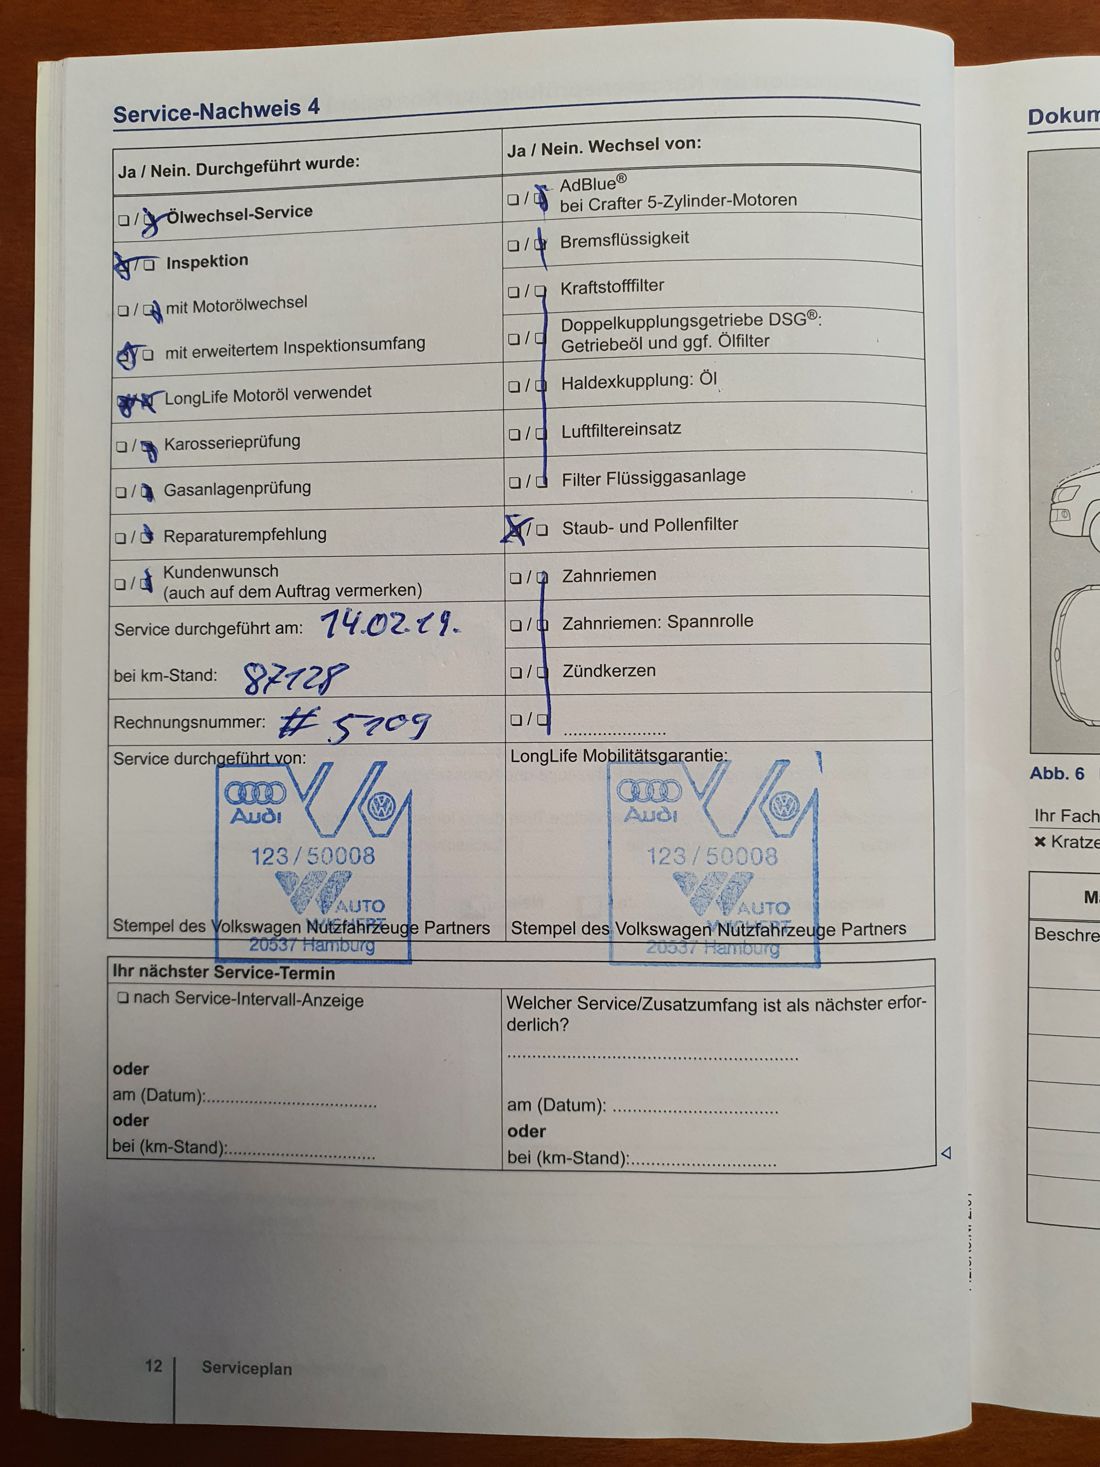 Service-Nachweis 4
Ja / Nein. Durchgeführt wurde:
❏ / ❏ Ölwechsel-Service
❏ / ❏ Inspektion
❏ / ❏ mit Motorölwechsel
❏ / ❏ mit erweitertem Inspektionsumfang
❏ / ❏ LongLife Motoröl verwendet
❏ / ❏ Karosserieprüfung
❏ / ❏ Gasanlagenprüfung
❏ / ❏ Reparaturempfehlung
❏ / ❏ Kundenwunsch
(auch auf dem Auftrag vermerken)
Service durchgeführt am: 14.02.19.
bei km-Stand: 87128
Rechnungsnummer: # 5109
Service durchgeführt von:
Audi
123/50008
AUTO
WICHERT
20537 Hamburg
Stempel des Volkswagen Nutzfahrzeuge Partners
Ja / Nein. Wechsel von:
❏ / ❏ AdBlue®
bei Crafter 5-Zylinder-Motoren
❏ / ❏ Bremsflüssigkeit
❏ / ❏ Kraftstofffilter
❏ / ❏ Doppelkupplungsgetriebe DSG®:
Getriebeöl und ggf. Ölfilter
❏ / ❏ Haldexkupplung: Öl
❏ / ❏ Luftfiltereinsatz
❏ / ❏ Filter Flüssiggasanlage
❏ / ❏ Staub- und Pollenfilter
❏ / ❏ Zahnriemen
❏ / ❏ Zahnriemen: Spannrolle
❏ / ❏ Zündkerzen
❏ / ❏ .....................
LongLife Mobilitätsgarantie:
Audi
123/50008
AUTO
WICHERT
20537 Hamburg
Stempel des Volkswagen Nutzfahrzeuge Partners
Ihr nächster Service-Termin
❏ nach Service-Intervall-Anzeige
oder
am (Datum):...................................
oder
bei (km-Stand):..............................
Welcher Service/Zusatzumfang ist als nächster erfor-
derlich?
............................................................
am (Datum): ..................................
oder
bei (km-Stand):..............................
12 Serviceplan
Dokum
Abb. 6
Ihr Fach
✖ Kratze
Beschre